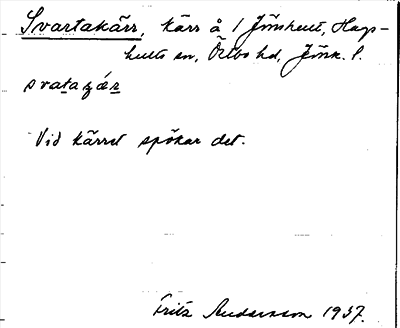 Svartakärr, kärr å 1 Jönshult, Hags-
hults sn, Östbo hd, Jönk. l.
svataɟǽr
Vid kärret spökar det.
Fritz Andersson 1937.